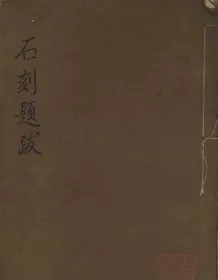 石刻題跋